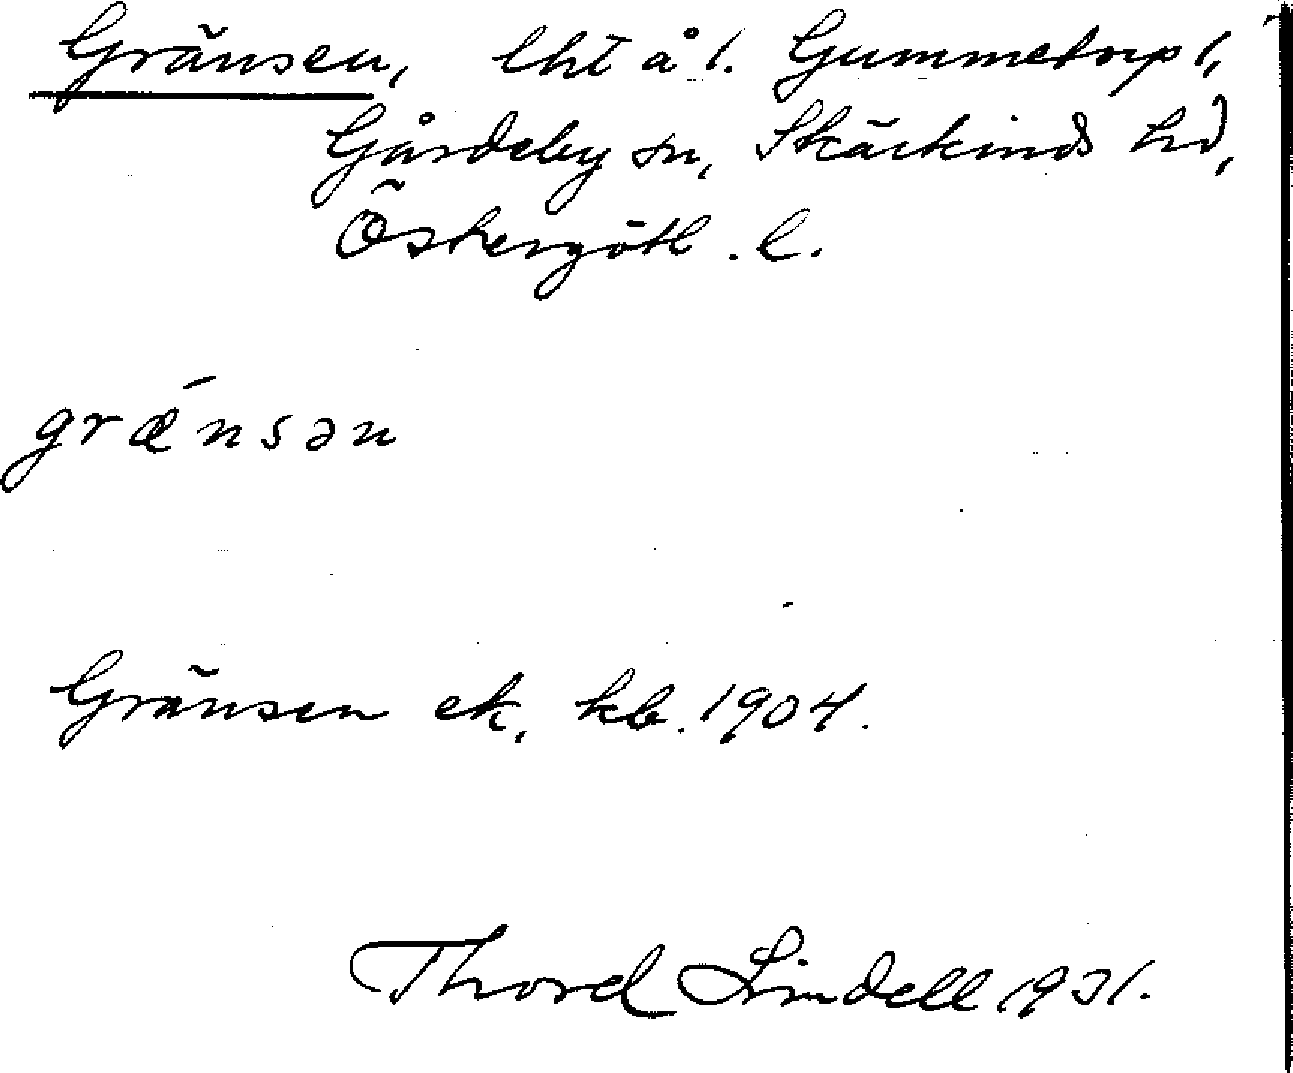 Gränsen, lht å 1. Gummetorp 1,
Gårdeby sn, Skärkinds hd,
Östergötl. l.
grǽnsən
Gränsen ek. kb. 1904.
Thord Lindell 1931.